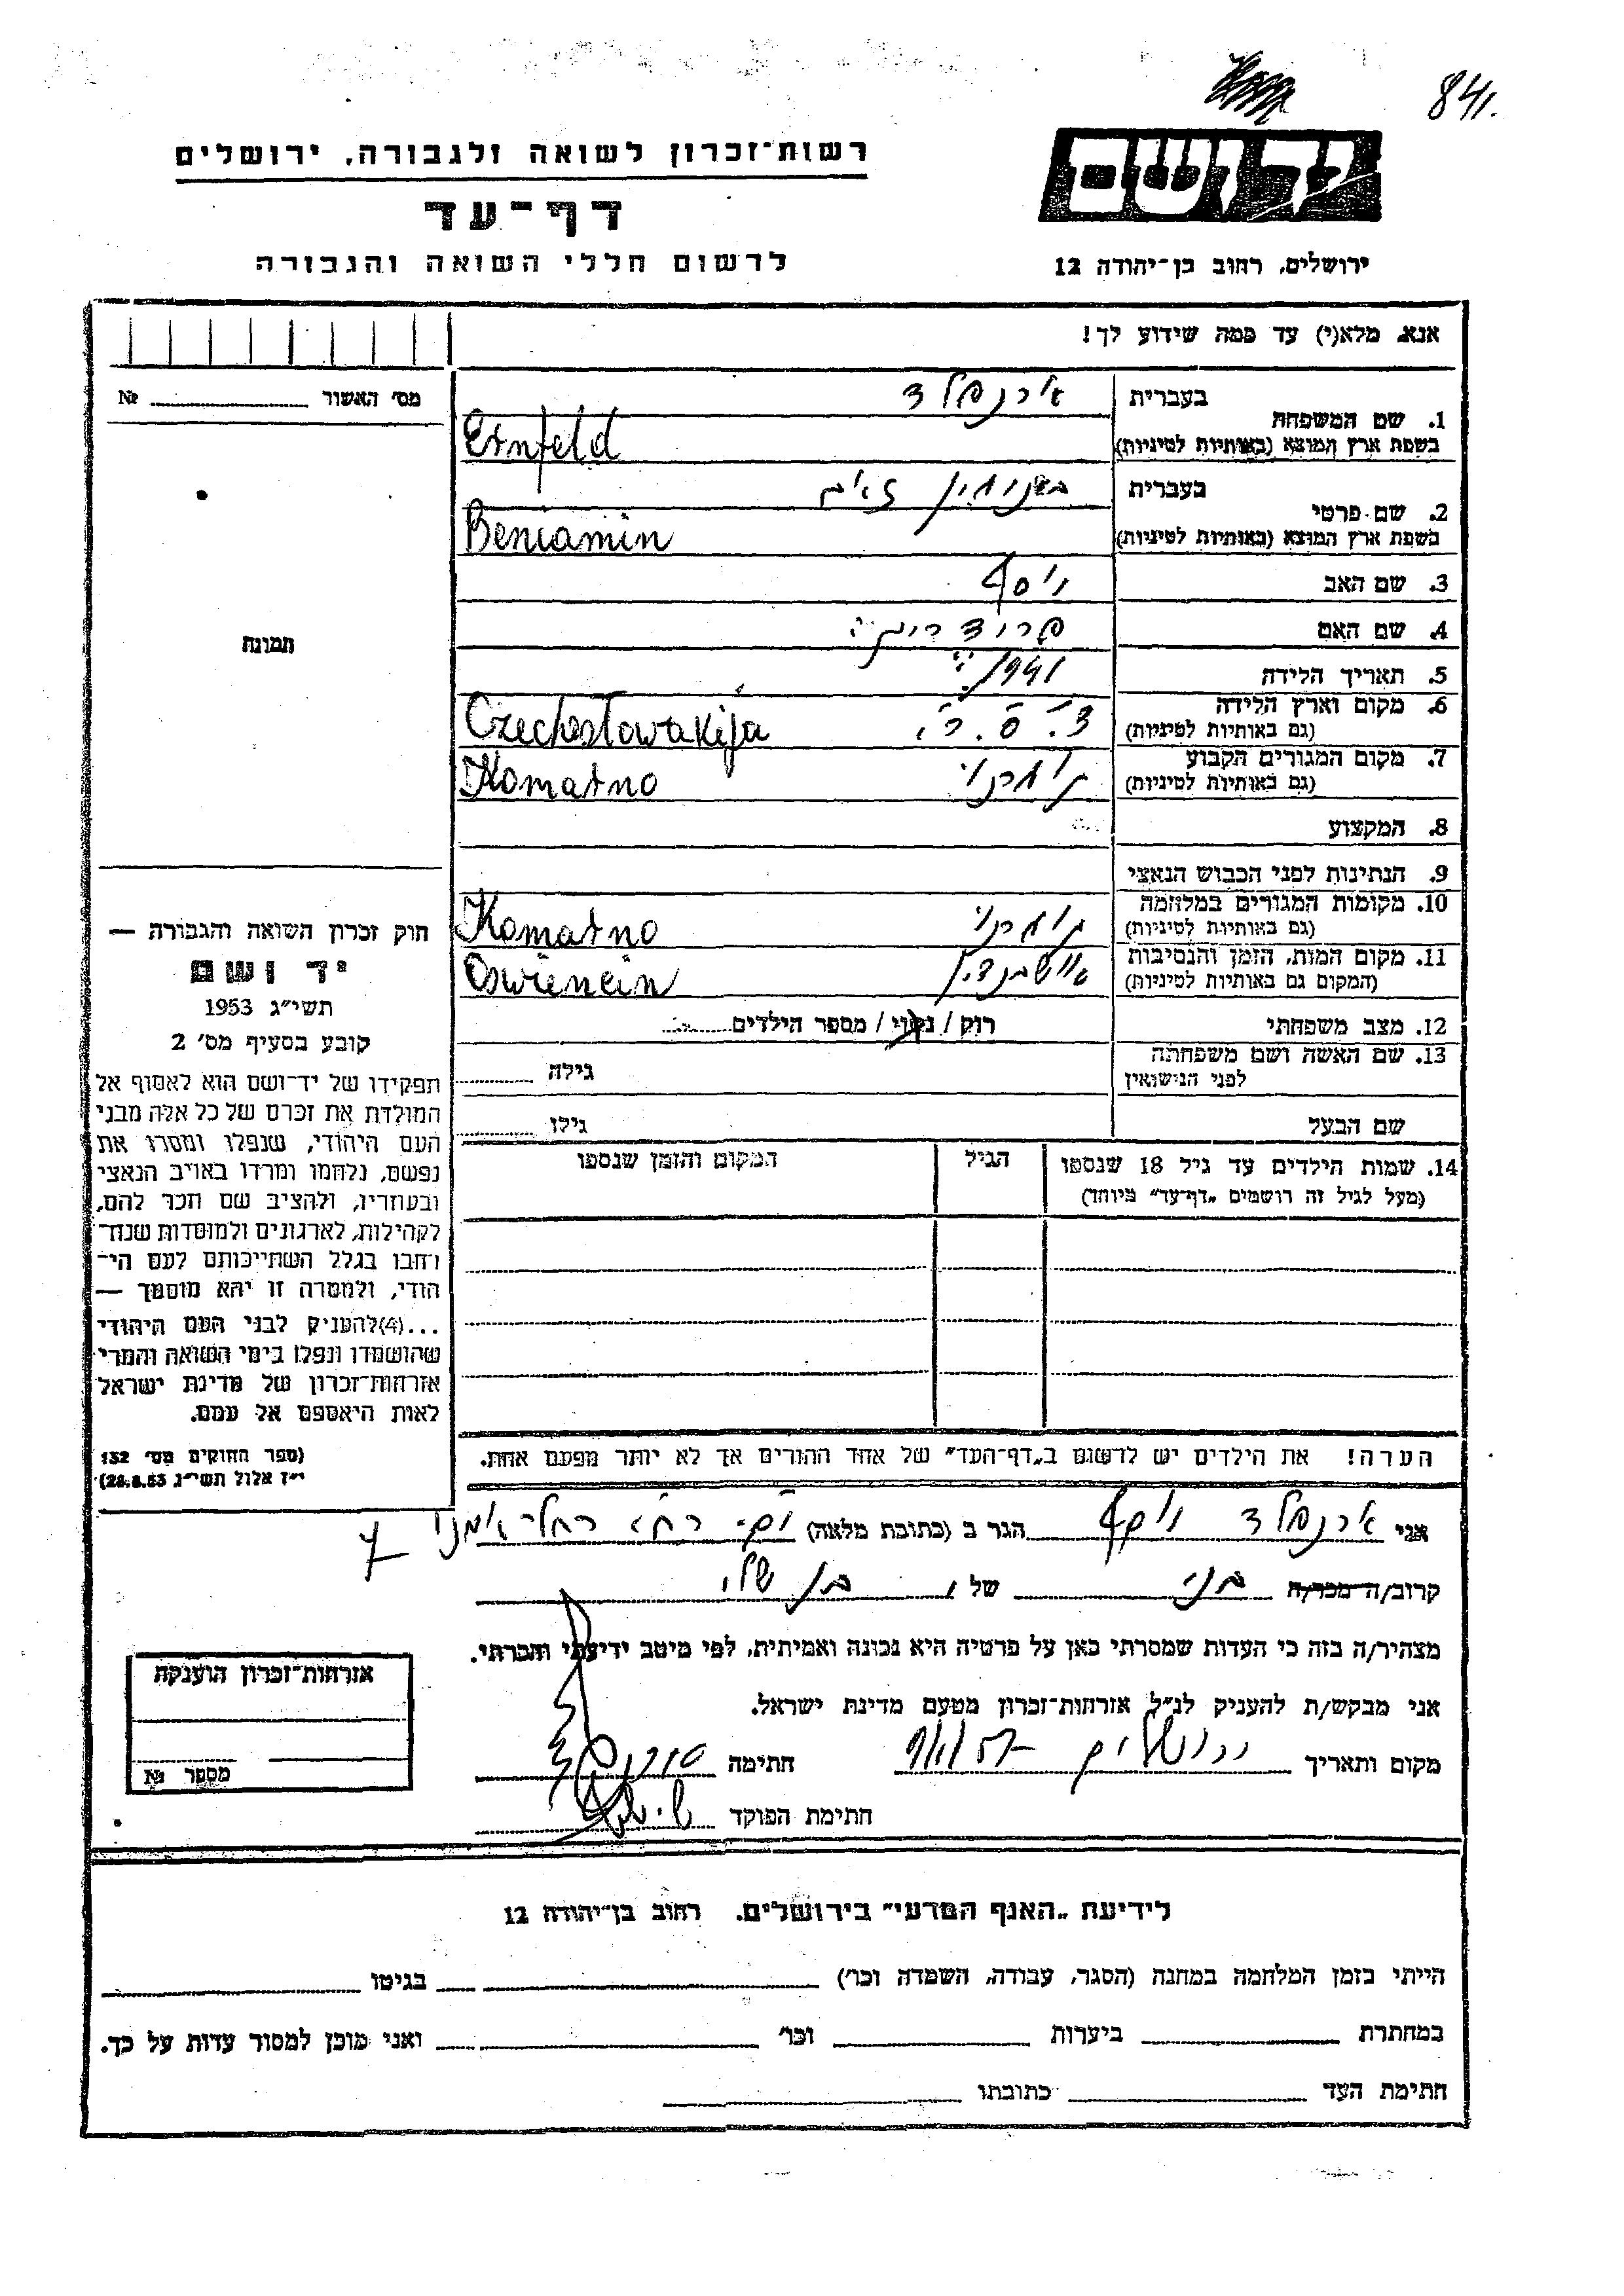 84/.
רשות־זכרון לשואה ולגבורה, ירושלים
יד ושם
דף־עד
לרשום חללי השואה והגבורה
ירושלים, רחוב בן־יהודה 12
אנא, מלא(י) עד כמה שידוע לך!
מס׳ האשור № 
1. שם המשפחה
בעברית ארנפלד
בשפת ארץ המוצא (באותיות לטיניות) Ernfeld
2. שם פרטי
בעברית בנימין זאב
בשפת ארץ המוצא (באותיות לטיניות) Beniamin
3. שם האב יוסף
4. שם האם
5. תאריך הלידה 1941
6. מקום וארץ הלידה
(גם באותיות לטיניות) צ.ס.ר. Czechostowakija
7. מקום המגורים הקבוע
(גם באותיות לטיניות) Komarno
8. המקצוע
9. הנתינות לפני הכבוש הנאצי
10. מקומות המגורים במלחמה
(גם באותיות לטיניות) Komarno
11. מקום המות, הזמן והנסיבות
(המקום גם באותיות לטיניות) Oswiencin
12. מצב משפחתי רוק / נשוי / מספר הילדים
13. שם האשה ושם משפחתה
לפני הנישואין גילה
שם הבעל גילו
14. שמות הילדים עד גיל 18 שנספו
(מעל לגיל זה רושמים „דף־עד” מיוחד)
הגיל
המקום והזמן שנספו
הערה! את הילדים יש לרשום ב„דף־העד” של אחד ההורים אך לא יותר מפעם אחת.
תמונה
חוק זכרון השואה והגבורה —
יד ושם
תשי״ג 1953
קובע בסעיף מס׳ 2
תפקידו של יד־ושם הוא לאסוף אל
המולדת את זכרם של כל אלה מבני
העם היהודי, שנפלו ומסרו את
נפשם, נלחמו ומרדו באויב הנאצי
ובעוזריו, ולהציב שם וזכר להם,
לקהילות, לארגונים ולמוסדות שנח־
רבו בגלל השתייכותם לעם הי־
הודי, ולמטרה זו יהא מוסמך —
...(4)להעניק לבני העם היהודי
שהושמדו ונפלו בימי השואה והמרי
אזרחות־זכרון של מדינת ישראל
לאות היאספם אל עמם.
(ספר החוקים מס׳ 132
י״ז אלול תשי״ג 28.8.53)
אני ארנפלד יוסף הגר ב (כתובת מלאה)
קרוב/ה מכר/ה של בן שלי
מצהיר/ה בזה כי העדות שמסרתי כאן על פרטיה היא נכונה ואמיתית, לפי מיטב ידיעתי והכרתי.
אני מבקש/ת להעניק לנ״ל אזרחות־זכרון מטעם מדינת ישראל.
מקום ותאריך ירושלים חתימה
חתימת הפוקד
אזרחות־זכרון הוענקה
מספר №
לידיעת „האגף המדעי” בירושלים, רחוב בן־יהודה 12
הייתי בזמן המלחמה במחנה (הסגר, עבודה, השמדה וכו׳) בגיטו
במחתרת ביערות וכו׳ ואני מוכן למסור עדות על כך.
חתימת העד כתובתו